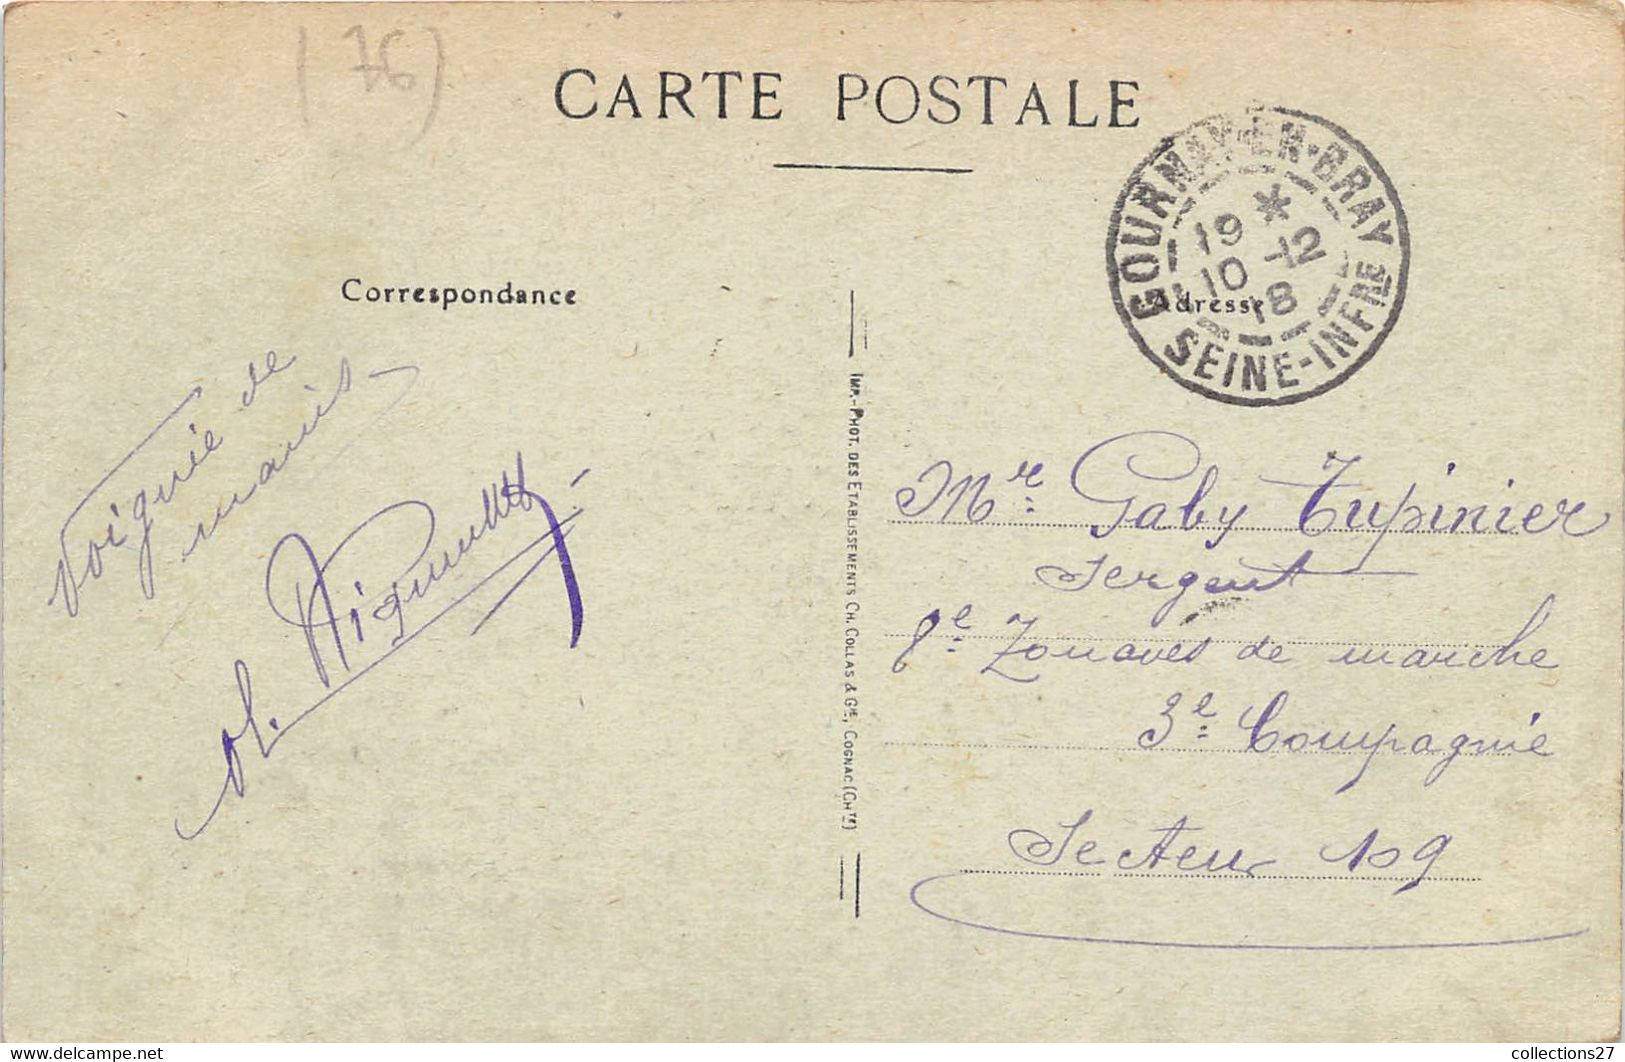 (76)
CARTE POSTALE
GOURNAY-EN-BRAY
*
19 12
10
18
SEINE-INFRE
Correspondance
Adresse
Poignée de
mains
IMP.-PHOT. DES ETABLISSEMENTS CH. COLLAS & CIE, COGNAC (CHTE)
Mr. Gaby Tupinier
Sergent
8e Zouaves de marche
3e Compagnie
Secteur 109
collections27